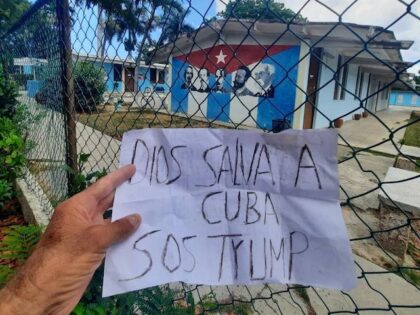 DIOS SALVA A
CUBA
SOS TRUMP